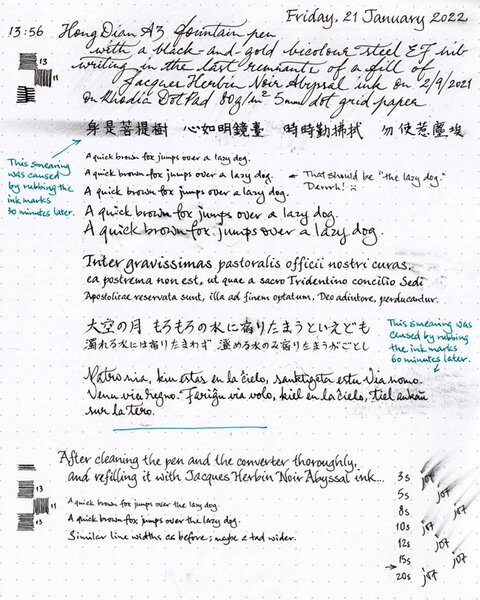 Friday, 21 January 2022
13:56 Hong Dian A3 fountain pen
with a black-and-gold bicolour steel EF nib
writing in the last remnants of a fill of
Jacques Herbin Noir Abyssal ink on 2/9/2021
on Rhodia DotPad 80g/m² 5mm dot grid paper
13
11
身是菩提樹 心如明鏡臺 時時勤拂拭 勿使惹塵埃
This smearing
was caused
by rubbing the
ink marks
30 minutes later.
A quick brown fox jumps over a lazy dog.
A quick brown fox jumps over a lazy dog. ← That should be "the lazy dog."
Derrrh!
A quick brown fox jumps over a lazy dog.
A quick brown fox jumps over a lazy dog.
A quick brown fox jumps over a lazy dog.
Inter gravissimas pastoralis officii nostri curas,
ea postrema non est, ut quae a sacro Tridentino concilio Sedi
Apostolicae reservata sunt, illa ad finem optatum, Deo adiutore, perducantur.
大空の月 もろもろの水に宿りたまうといえども
濁れる水には宿りたまわず 澄める水のみ宿りたまうがごとし
This smearing was
caused by rubbing
the ink marks
60 minutes later.
Patro nia, kiu estas en la ĉielo, sanktigata estu Via nomo.
Venu via regno. Fariĝu via volo, kiel en la ĉielo, tiel ankaŭ
sur la tero.
After cleaning the pen and the converter thoroughly,
and refilling it with Jacques Herbin Noir Abyssal ink...
13
11
13
A quick brown fox jumps over the lazy dog.
A quick brown fox jumps over the lazy dog.
Similar line widths as before; maybe a tad wider.
3s jot
5s jot
8s jot
10s jot
12s jot
→ 15s jot
20s jot